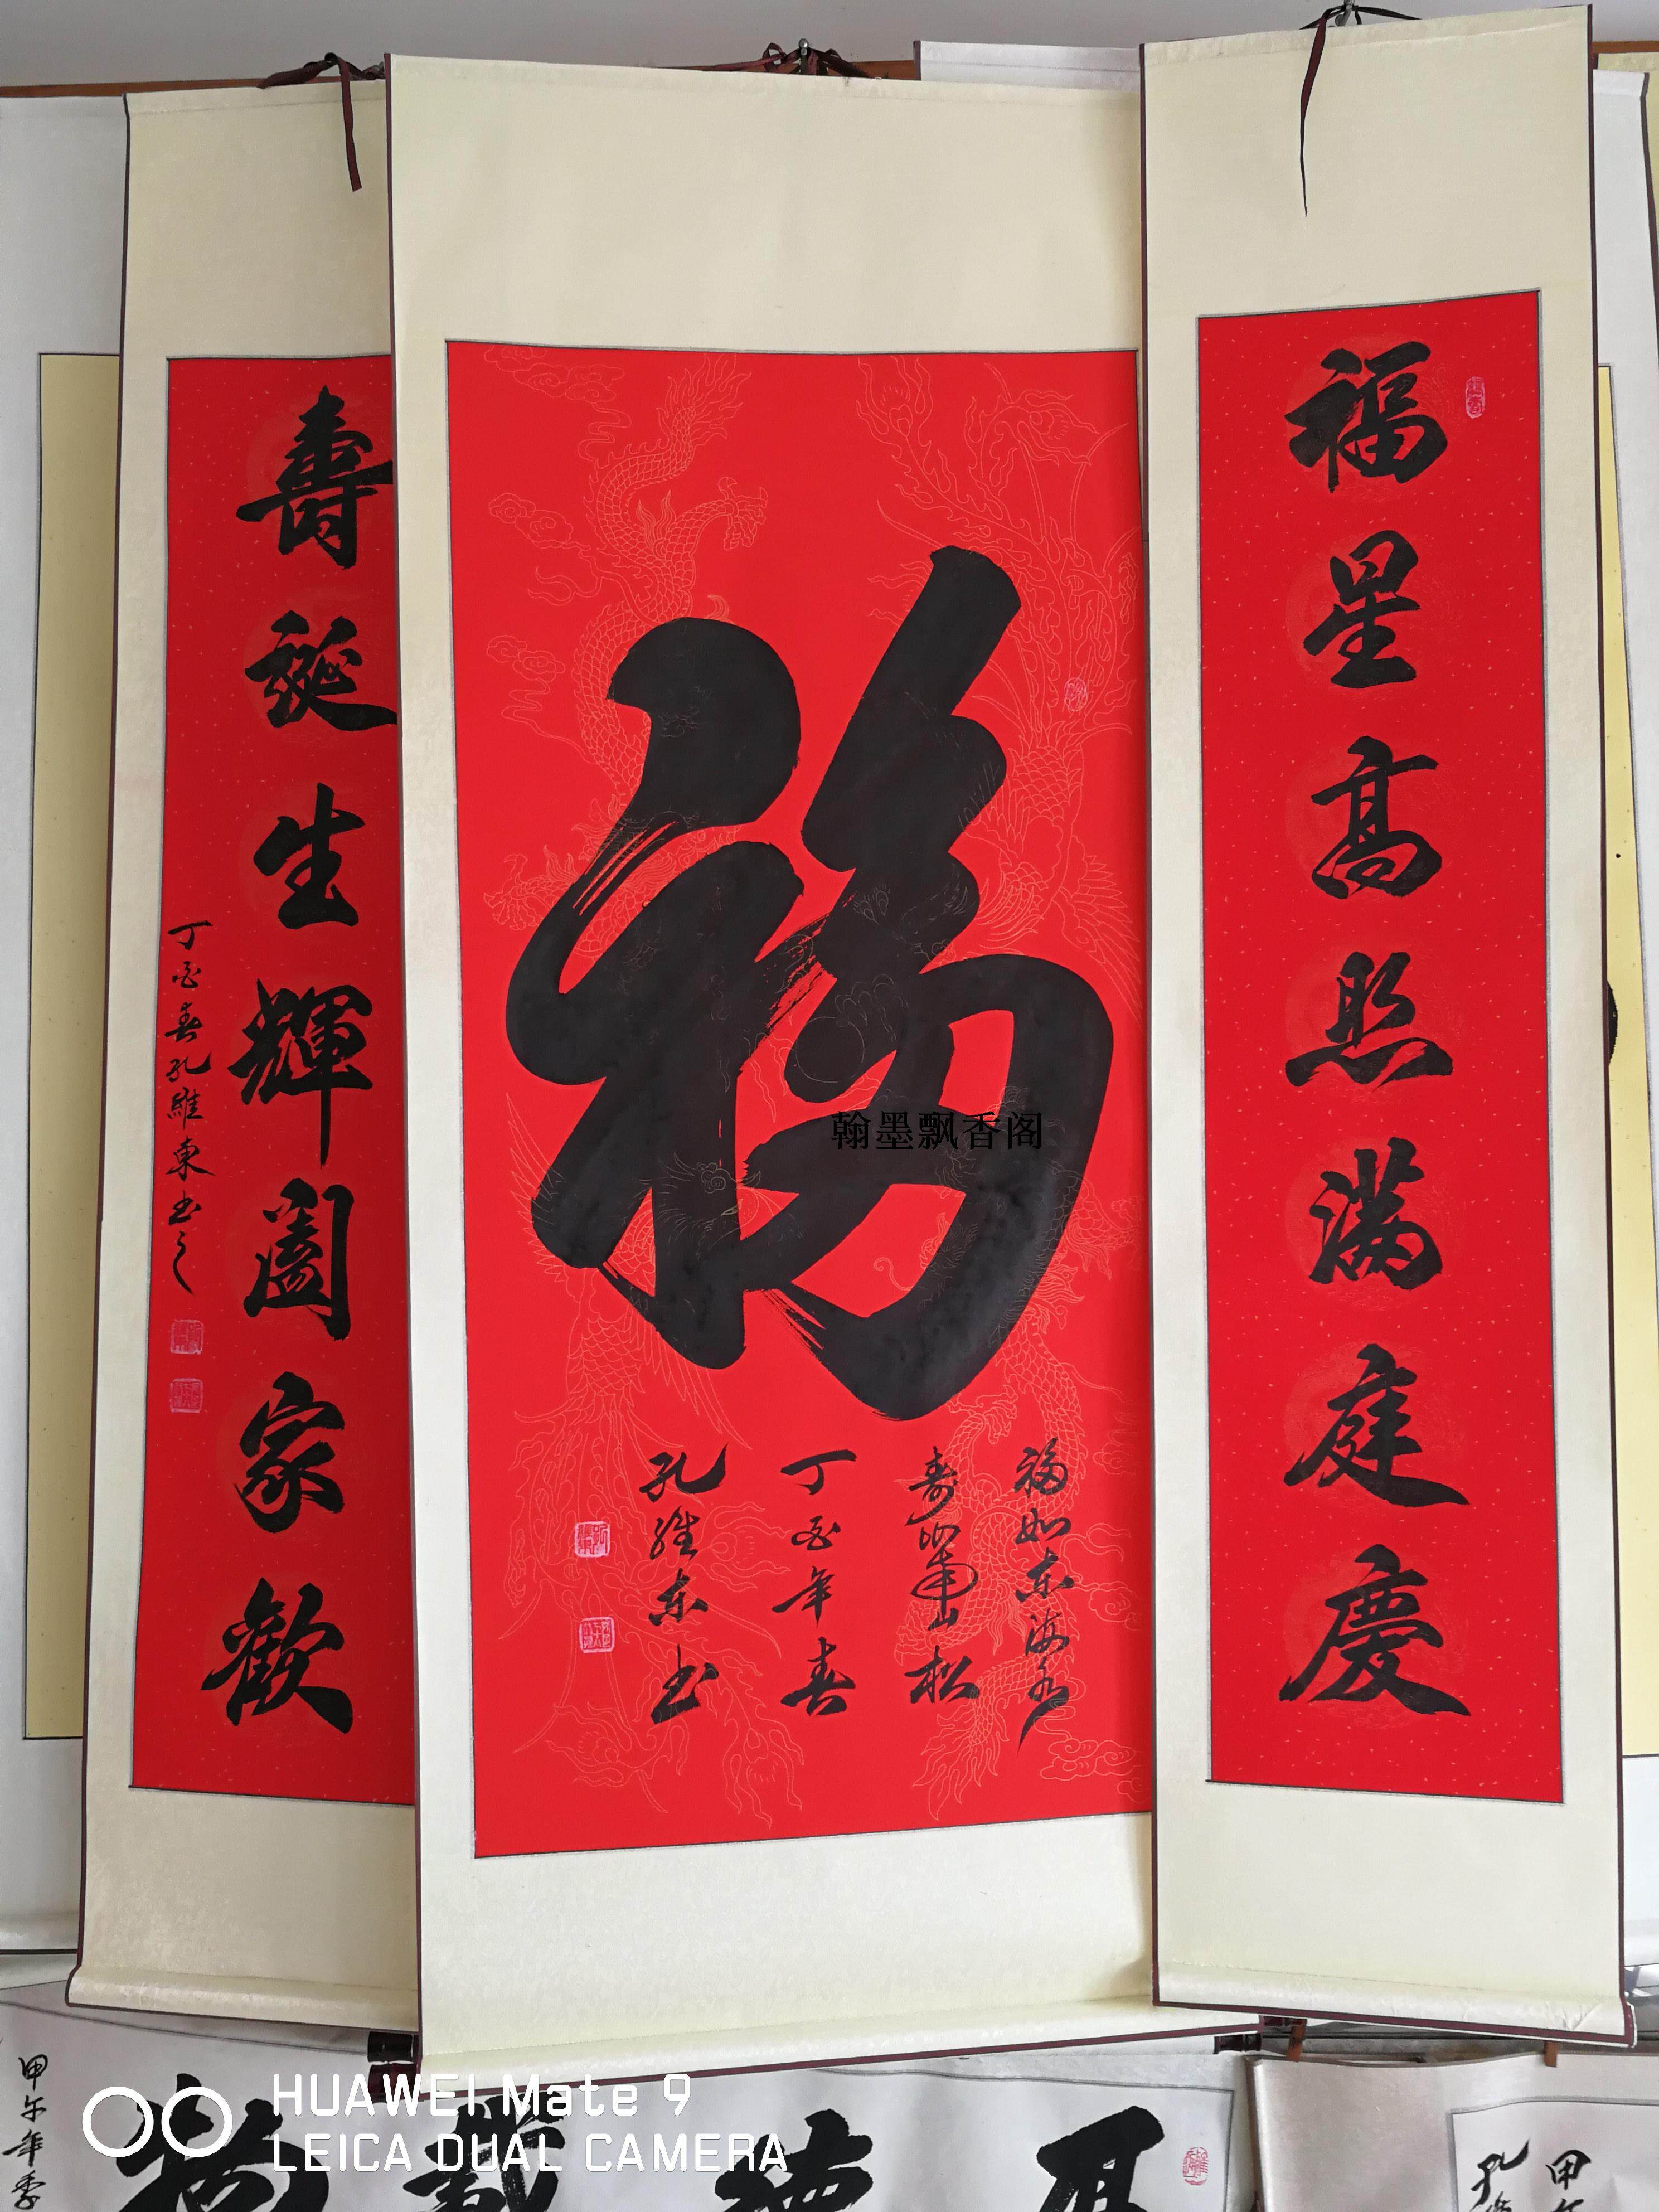 福星高照满庭慶
福
福如东海水
寿比南山松
丁酉年春
孔维东书
壽诞生輝阖家歡
丁酉春孔維東书之
翰墨飘香阁
甲午年季
載德
甲午
孔维
HUAWEI Mate 9
LEICA DUAL CAMERA